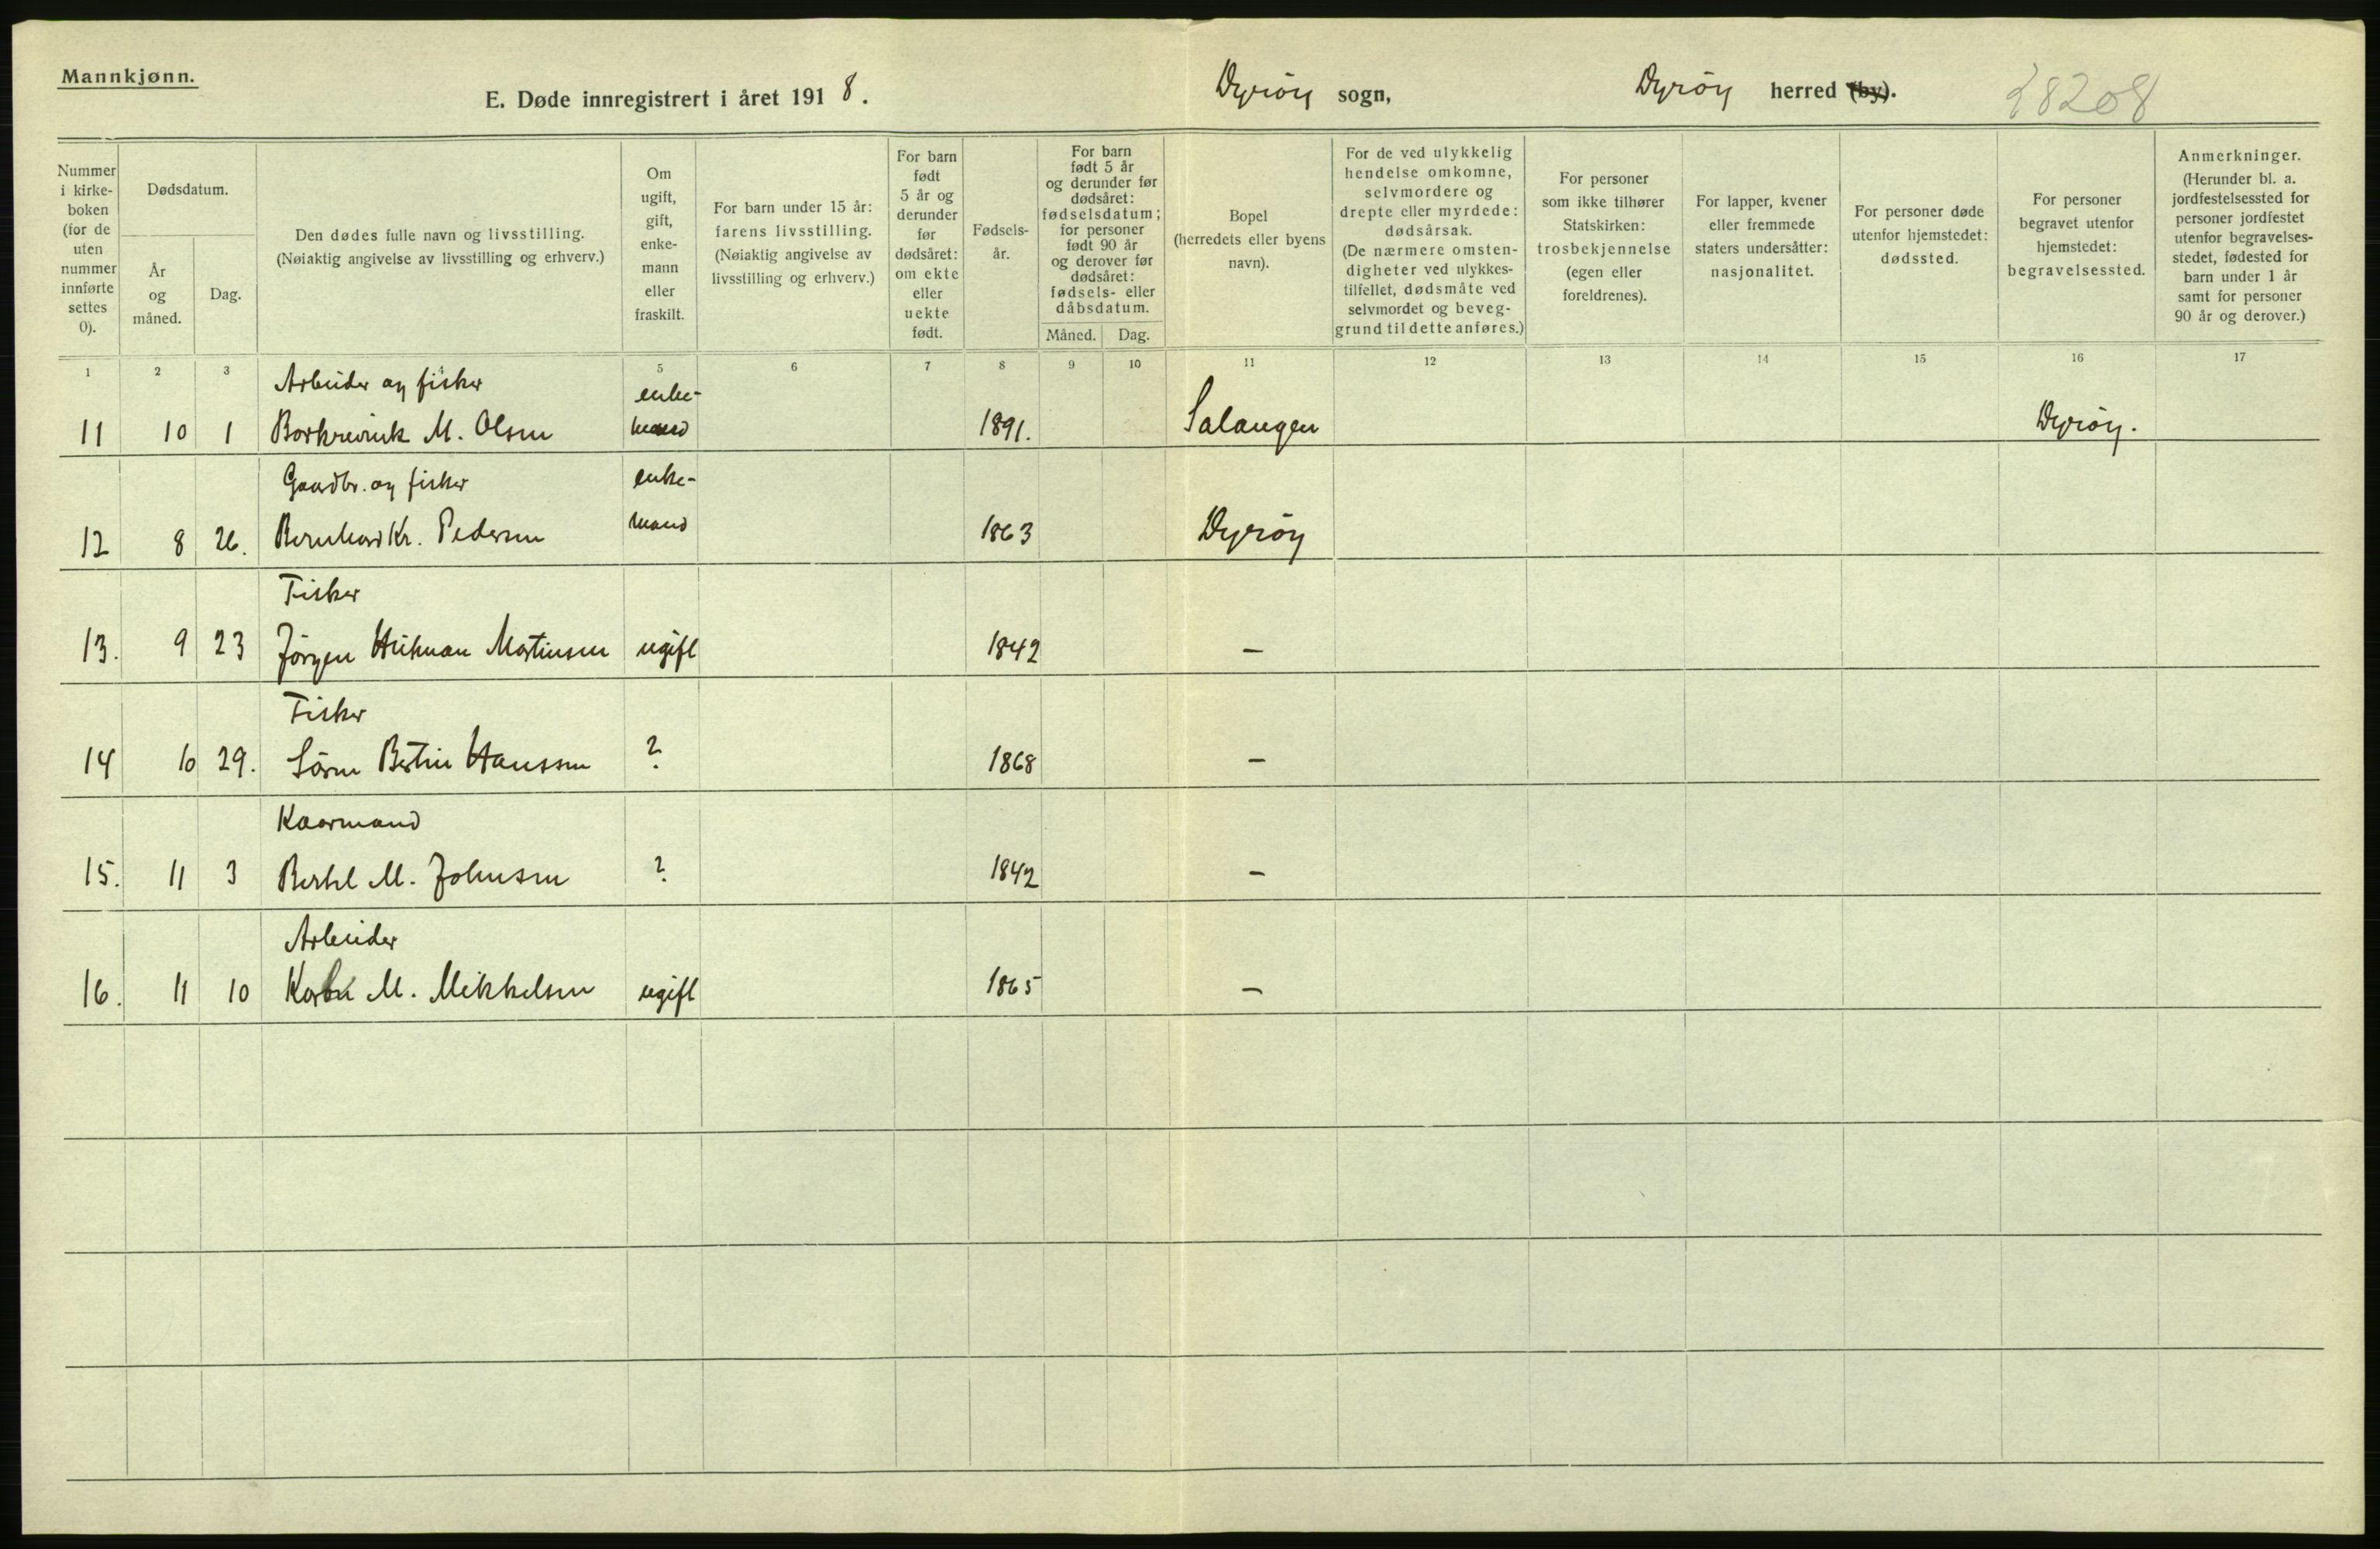 Mannkjønn.
E. Døde innregistrert i året 1918.
Dyröy sogn,
Dyröy herred (by).
28208
Nummer i kirke-boken (for de uten nummer innførte settes 0).
Dødsdatum.
År og måned.
Dag.
Den dødes fulle navn og livsstilling.
(Nøiaktig angivelse av livsstilling og erhverv.)
Om ugift, gift, enke-mann eller fraskilt.
For barn under 15 år: farens livsstilling. (Nøiaktig angivelse av livsstilling og erhverv.)
For barn født 5 år og derunder før dødsåret: om ekte eller uekte født.
Fødsels-år.
For barn født 5 år og derunder før dødsåret: fødselsdatum; for personer født 90 år og derover før dødsåret: fødsels- eller dåbsdatum.
Måned.
Dag.
Bopel (herredets eller byens navn).
For de ved ulykkelig hendelse omkomne, selvmordere og drepte eller myrdede: dødsårsak. (De nærmere omsten-digheter ved ulykkes-tilfellet, dødsmåte ved selvmordet og beveg-grund til dette anføres.)
For personer som ikke tilhører Statskirken: trosbekjennelse (egen eller foreldrenes).
For lapper, kvener eller fremmede staters undersåtter: nasjonalitet.
For personer døde utenfor hjemstedet: dødssted.
For personer begravet utenfor hjemstedet: begravelsessted.
Anmerkninger. (Herunder bl. a. jordfestelsessted for personer jordfestet utenfor begravelses-stedet, fødested for barn under 1 år samt for personer 90 år og derover.)
1 2 3 4 5 6 7 8 9 10 11 12 13 14 15 16 17
Arbeider og fisker enke-
11 10 1 M. Olsen mand 1891. Salangen Dyröy.
Gaardbr. og fisker enke-
12 8 26. Bernhard Kr. Pedersen mand 1863 Dyröy
Fisker
13. 9 23 Jörgen Hilman Martinsen ugift 1842 –
Fisker
14 10 29. Sören Bertin Hanssen ? 1868 –
Kaarmand
15. 11 3 Berthl M. Johnsen ? 1842 –
Arbeider
16. 11 10 M. Mikkelsen ugift 1865 –